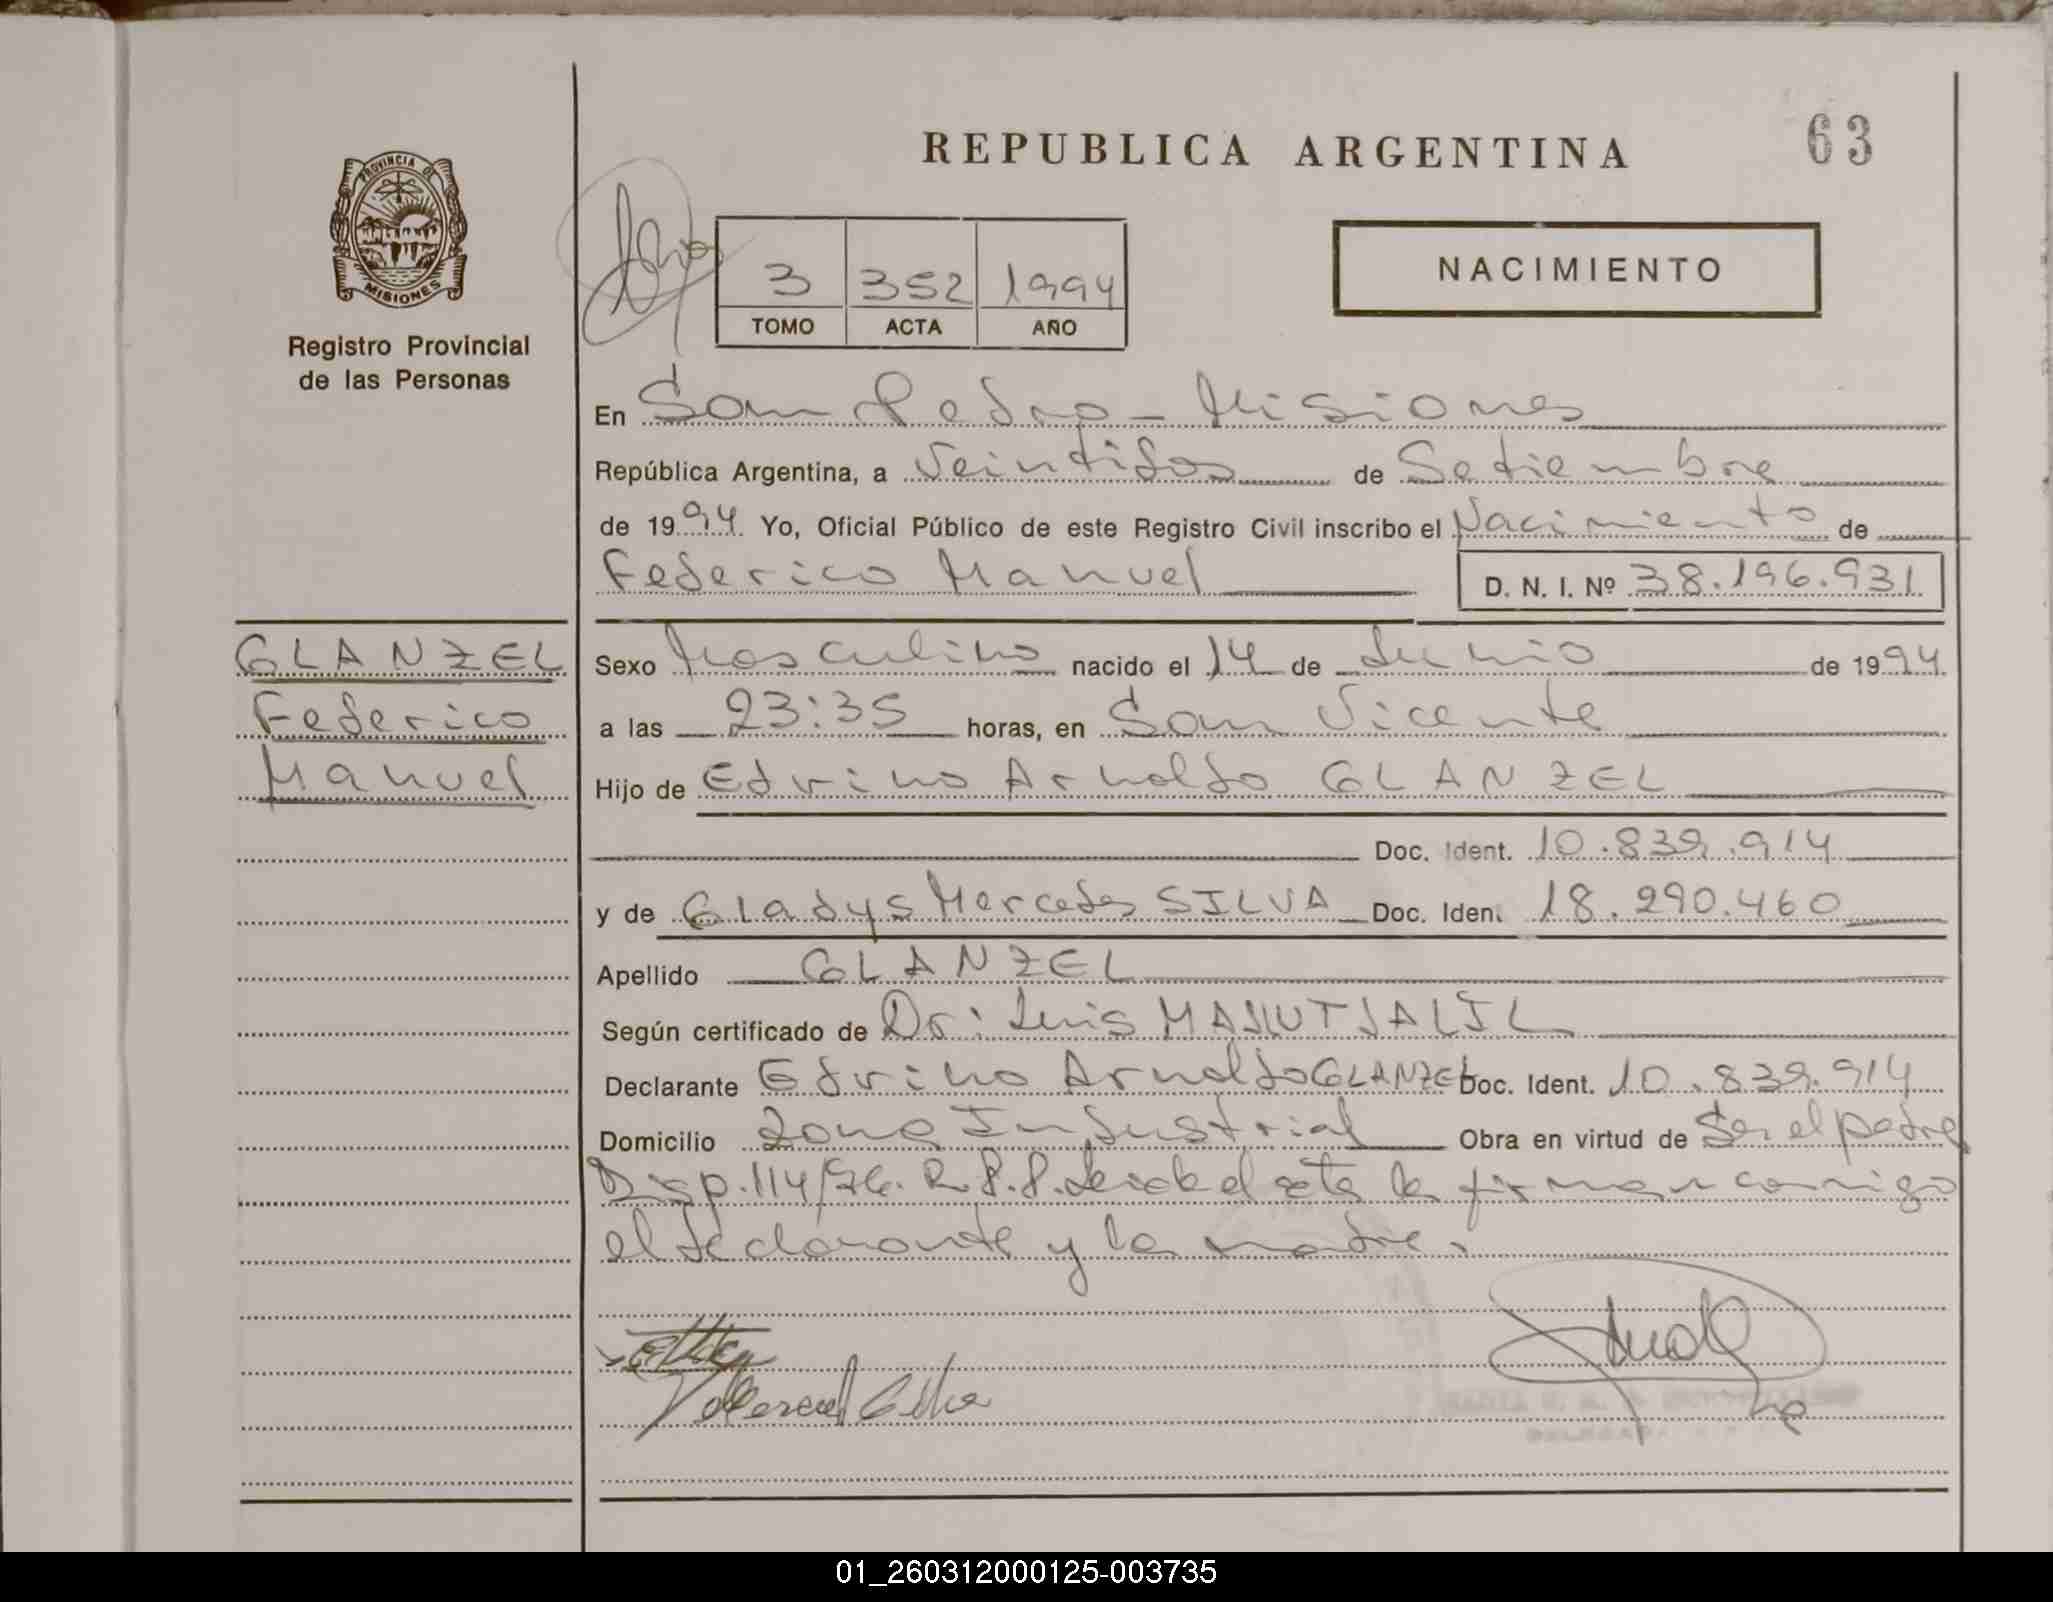 REPUBLICA ARGENTINA
63
PROVINCIA DE
MISIONES
Registro Provincial
de las Personas
3 352 1994
TOMO ACTA AÑO
NACIMIENTO
En San Pedro - Misiones
República Argentina, a Veintidos de Setiembre
de 1994. Yo, Oficial Público de este Registro Civil inscribo el Nacimiento de
Federico Manuel D. N. I. Nº 38.196.931
GLANZEL
Federico
Manuel
Sexo Masculino nacido el 14 de Junio de 1994
a las 23:35 horas, en San Vicente
Hijo de Edvino Arnoldo GLANZEL
Doc. Ident. 10.839.914
y de Gladys Mercedes SILVA Doc. Iden. 18.290.460
Apellido GLANZEL
Según certificado de Dr: Luis
Declarante Edvino Arnoldo GLANZEL Doc. Ident. 10.839.914
Domicilio Zona Industrial Obra en virtud de Ser el padre
Disp. 114/76. R.P.P. Leida el acta la firman conmigo
el declarante y la madre.
01_260312000125-003735